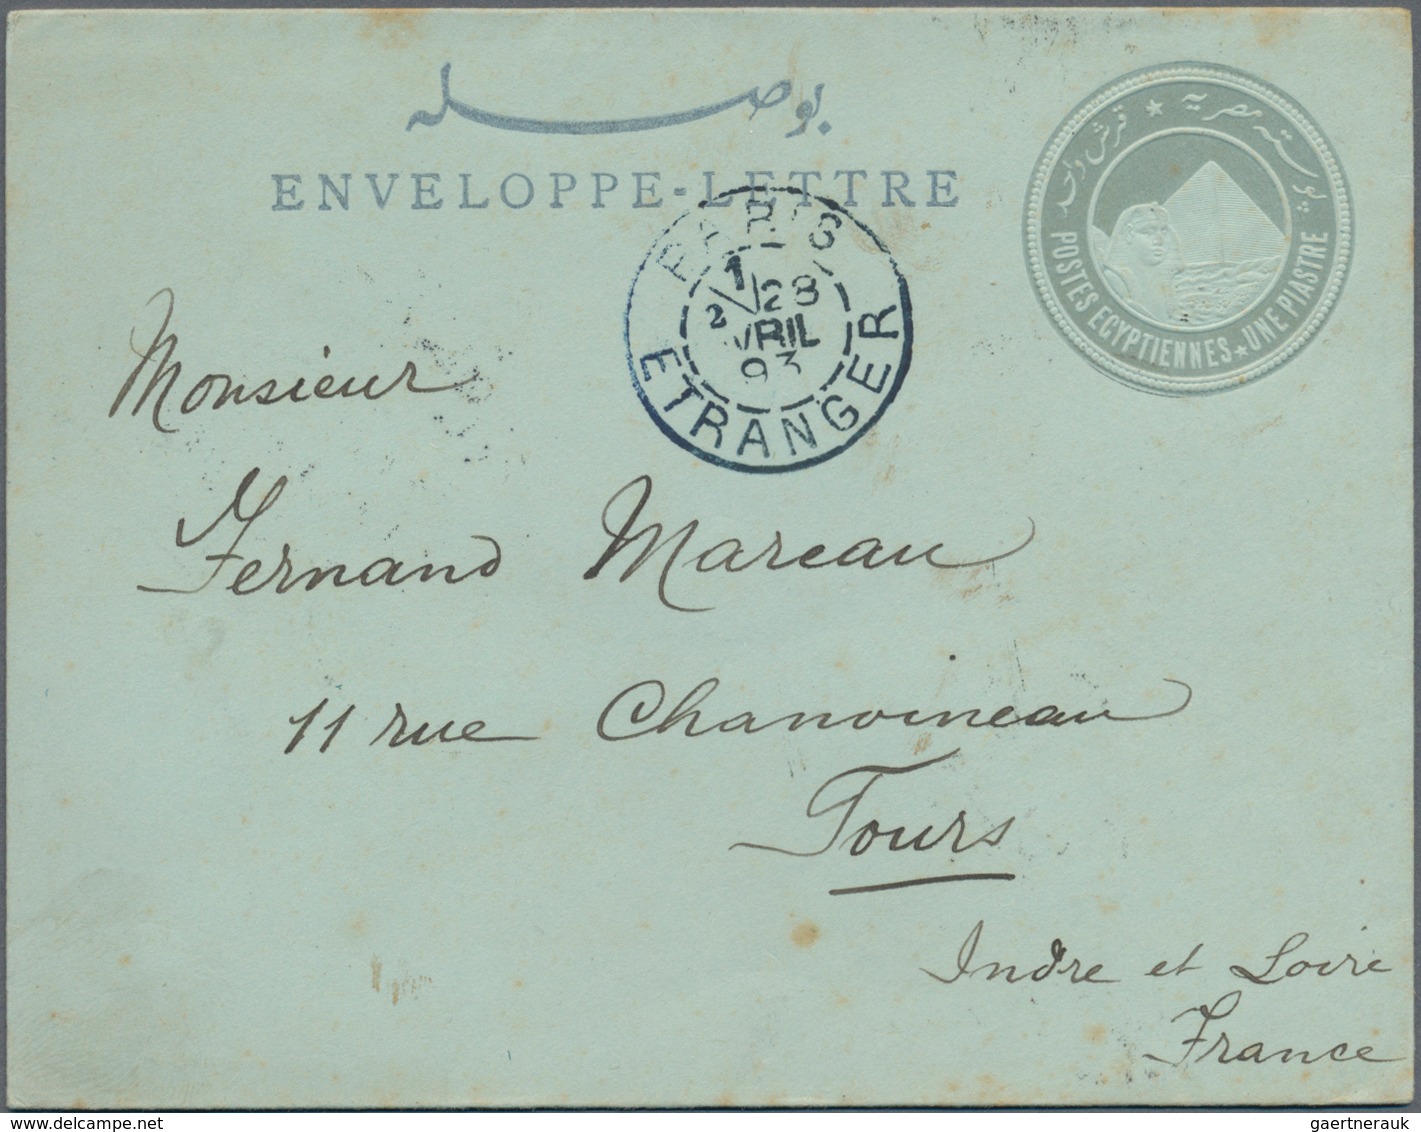 بوصله
ENVELOPPE-LETTRE
بوسته مصريه ★ قرش واحد
POSTES EGYPTIENNES ★ UNE PIASTRE
PARIS
1
2
28
AVRIL
93
ETRANGER
Monsieur
Fernand Mareau
11 rue Chanoineau
Tours
Indre et Loire
France
gaertnerauk @ delcampe.net